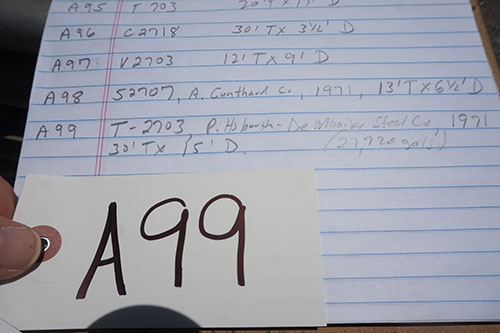 A95 T 703
A96 C2718 30' T x 3½' D
A97 V2703 12' T x 9' D
A98 S2707, A. Gunthard Co, 1971, 13' T x 6½' D
A99 T-2703, Pittsburgh-Des Moines Steel Co 1971
30' T x 15' D (27,720 gals')
A99